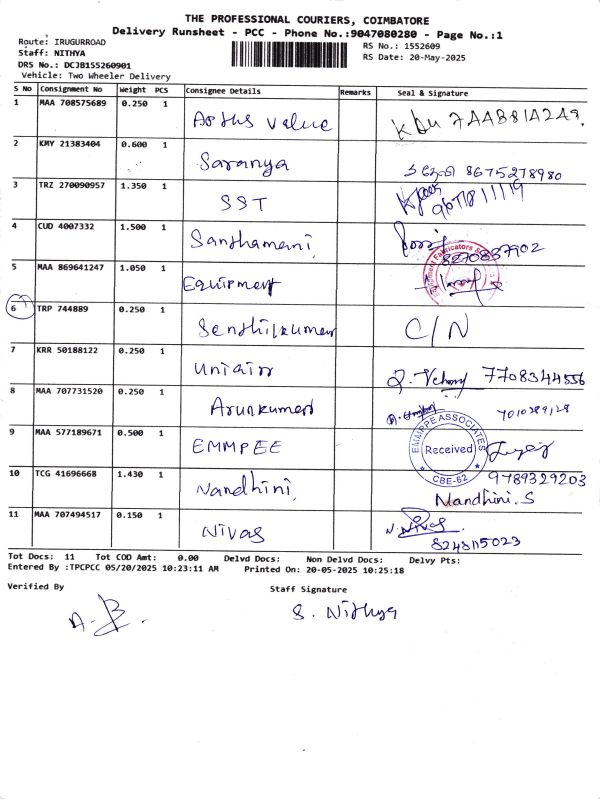 THE PROFESSIONAL COURIERS, COIMBATORE
Delivery Runsheet - PCC - Phone No.:9047080280 - Page No.:1
Route: IRUGURROAD
RS No.: 1552609
Staff: NITHYA
RS Date: 20-May-2025
DRS No.: DCJB155260901
Vehicle: Two Wheeler Delivery
S No Consignment No Weight PCS Consignee Details Remarks Seal & Signature
1 MAA 708575689 0.250 1 Value
2 KMY 21383404 0.600 1 Saranya 8675278980
3 TRZ 270090957 1.350 1 SST
4 CUD 4007332 1.500 1 Santhamani 8270837902
5 MAA 869641247 1.050 1 Equipment
6 TRP 744889 0.250 1 Senthilkumar C/N
7 KRR 50188122 0.250 1 Uniair 7708344556
8 MAA 707731520 0.250 1 Arunkumar
9 MAA 577189671 0.500 1 EMMPEE
EMMPPE ASSOCIATES
Received
CBE-62
10 TCG 41696668 1.430 1 Nandhini 9789329203
Nandhini.S
11 MAA 707494517 0.150 1 Nivas N. Nivas
Tot Docs: 11 Tot COD Amt: 0.00 Delvd Docs: Non Delvd Docs: Delvy Pts:
Entered By :TPCPCC 05/20/2025 10:23:11 AM Printed On: 20-05-2025 10:25:18
Verified By Staff Signature
S. Nithya